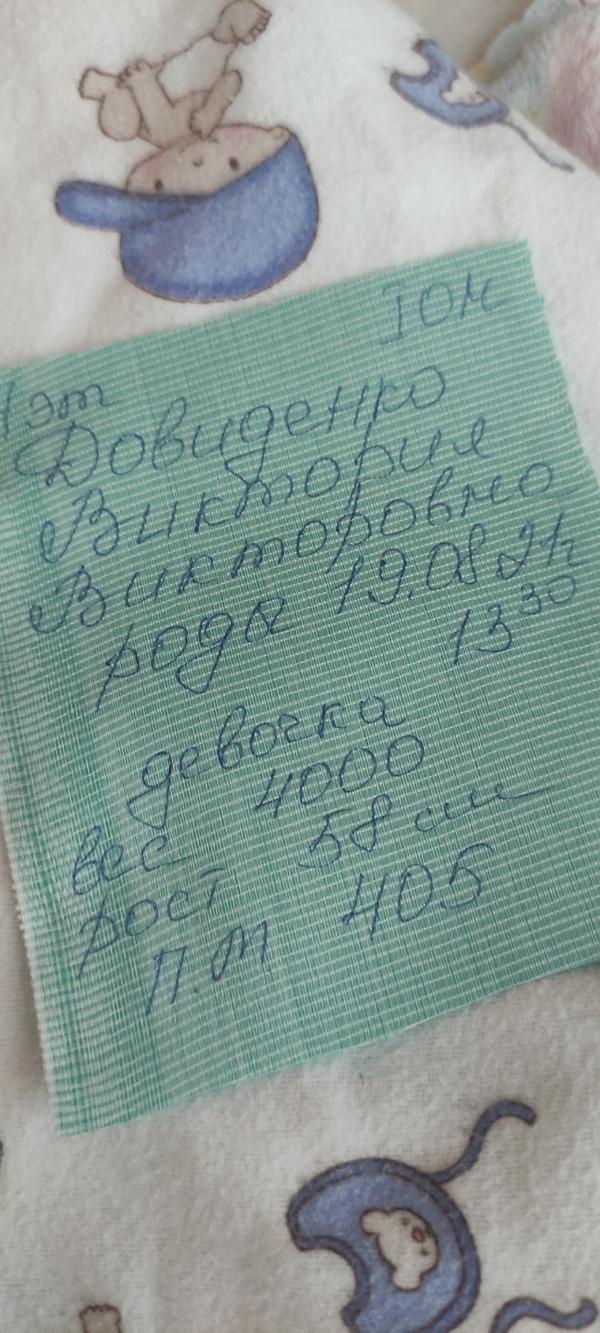 1 эт
Довиденко
Виктория
Викторовна
роды 19.08.21г
13 30
девочка
вес 4000
рост 58 см
П.М 405